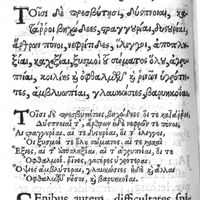 Τοῖσι δὲ πρεσβύτησι, δύσπνοιαι, κα-
ταῤῥοι βηχώδεες, στραγγουρίαι, δυσουρίαι,
ἄρθρων πόνοι, νεφρίτιδες, ἴλιγγοι, ἀποπλη-
ξίαι, καχεξίαι, ξυσμοὶ τοῦ σώματος ὅλου, ἀγρυ-
πνίαι, κοιλίης καὶ ὀφθαλμῶν καὶ ῥινῶν ὑγρότη-
τες, ἀμβλυωπίαι, γλαυκώσιες, βαρυηκοΐαι.
Τοῖς δὲ πρεσβυτέροις, βηχώδεις
Δύσπνοιαί τ', ἄρθρων ἠδὲ νεφρῶν τε πόνοι,
Αἱ στραγγουρίαι, αἵ τε δυσουρίαι, οἵ τ' ἴλιγγοι,
Οἱ ξυσμοὶ, τοῦ ὅλου σώματος
Ἕξεις, αἵ τ' ἀποπληξίαι, αἵ τ' ἀγρυπνίαι,
Ὀφθαλμοὶ, ῥῖνες, γαστέρες ὑγρότεραι.
Ὄψεις ἀμβλύτεραι, γλαυκώσιες ἠδὲ
Ὀφθαλμῶν νόσος, καὶ βαρυηκοΐαι.
SEnibus autem, difficultates spi-